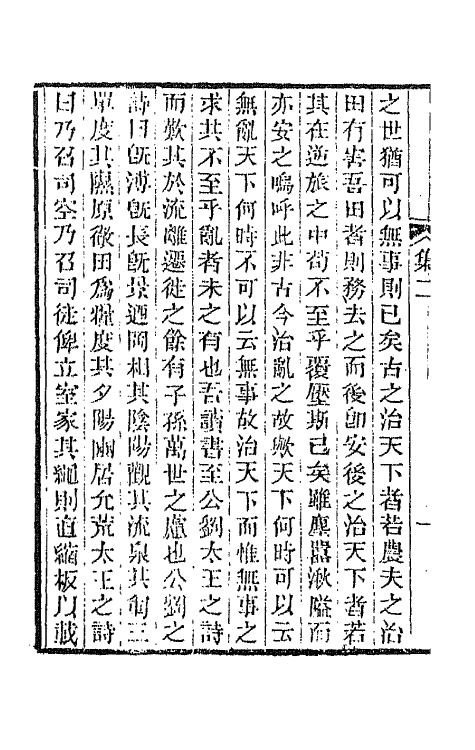 集二
一
之世猶可以無事則已矣古之治天下者若農夫之治
田有害吾田者則務去之而後卽安後之治天下者若
其在逆旅之中苟不至乎覆壓斯已矣雖塵囂湫隘而
亦安之嗚呼此非古今治亂之故歟天下何時可以云
無亂天下何時不可以云無事故治天下而惟無事之
求其不至乎亂者未之有也吾讀書至公劉太王之詩
而歎其於流離遷徙之餘有子孫萬世之慮也公劉之
詩曰旣溥旣長旣景迺岡相其陰陽觀其流泉其軍三
單度其隰原徹田爲糧度其夕陽豳居允荒太王之詩
曰乃召司空乃召司徒俾立室家其繩則直縮板以載